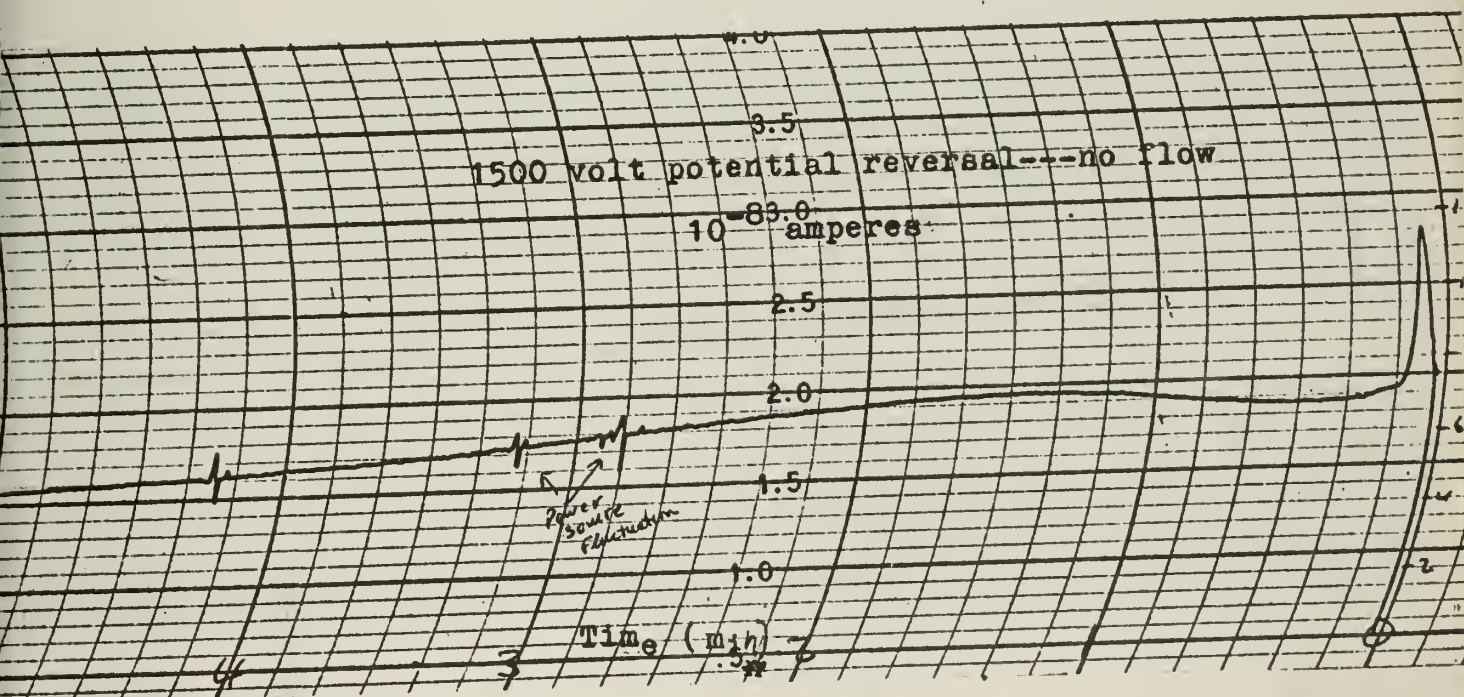 4.0
3.5
1500 volt potential reversal---no flow
3.0
10-8 amperes
2.5
2.0
1.5
Power
source
Fluctuation
1.0
Time (min)
.5
4
3
2
0
6
4
2